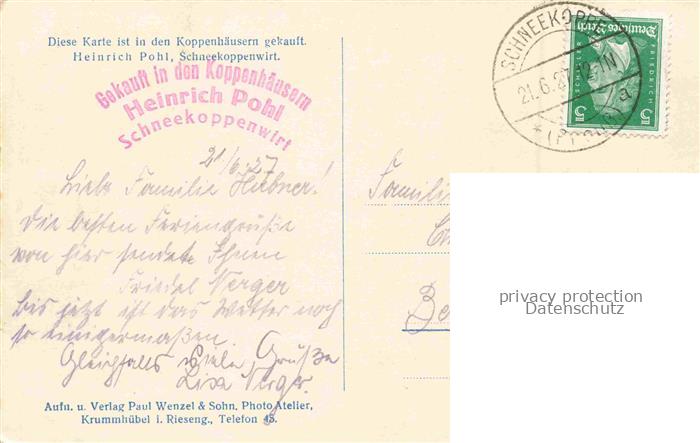 Diese Karte ist in den Koppenhäusern gekauft.
Heinrich Pohl, Schneekoppenwirt.
Gekauft in den Koppenhäusern
Heinrich Pohl
Schneekoppenwirt
21/6.27
Liebe Familie Hübner!
Die besten Feriengrüße
von hier sendet Ihnen
Friedel Verger
bis jetzt ist das Wetter noch
so einigermaßen.
Gleichfalls viele Grüße
Lisa Verger.
Aufn. u. Verlag Paul Wenzel & Sohn, Photo Atelier,
Krummhübel i. Rieseng., Telefon 45.
SCHNEEKOPPE
21.6.27.12-N
a
Deutsches Reich
FRIEDRICH
SCHILLER
5
5
Familie
Be
privacy protection
Datenschutz